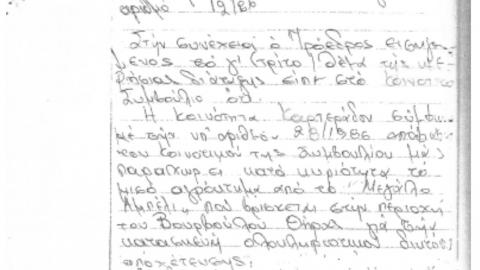 αριθμό 12/86
Στην συνέχεια ο Πρόεδρος εισηγού-
μενος το γ' (τρίτο) θέμα της ημε-
ρήσιας διάταξης είπε στο Κοινοτικό
Συμβούλιο ότι
Η κοινότητα Καρτεράδου σύμφω-
με την υπ' αριθμόν 28/1986 απόφαση
του Κοινοτικού της Συμβουλίου μας
παραχωρεί κατά κυριότητα το
μισό αγρόκτημα από το "Μεγάλο
Αμπέλι" που βρίσκεται στην περιοχή
του Βουρβούλου Θήρας για την
κατασκευή ολοκληρωτικού δικτύου
αποχέτευσης.